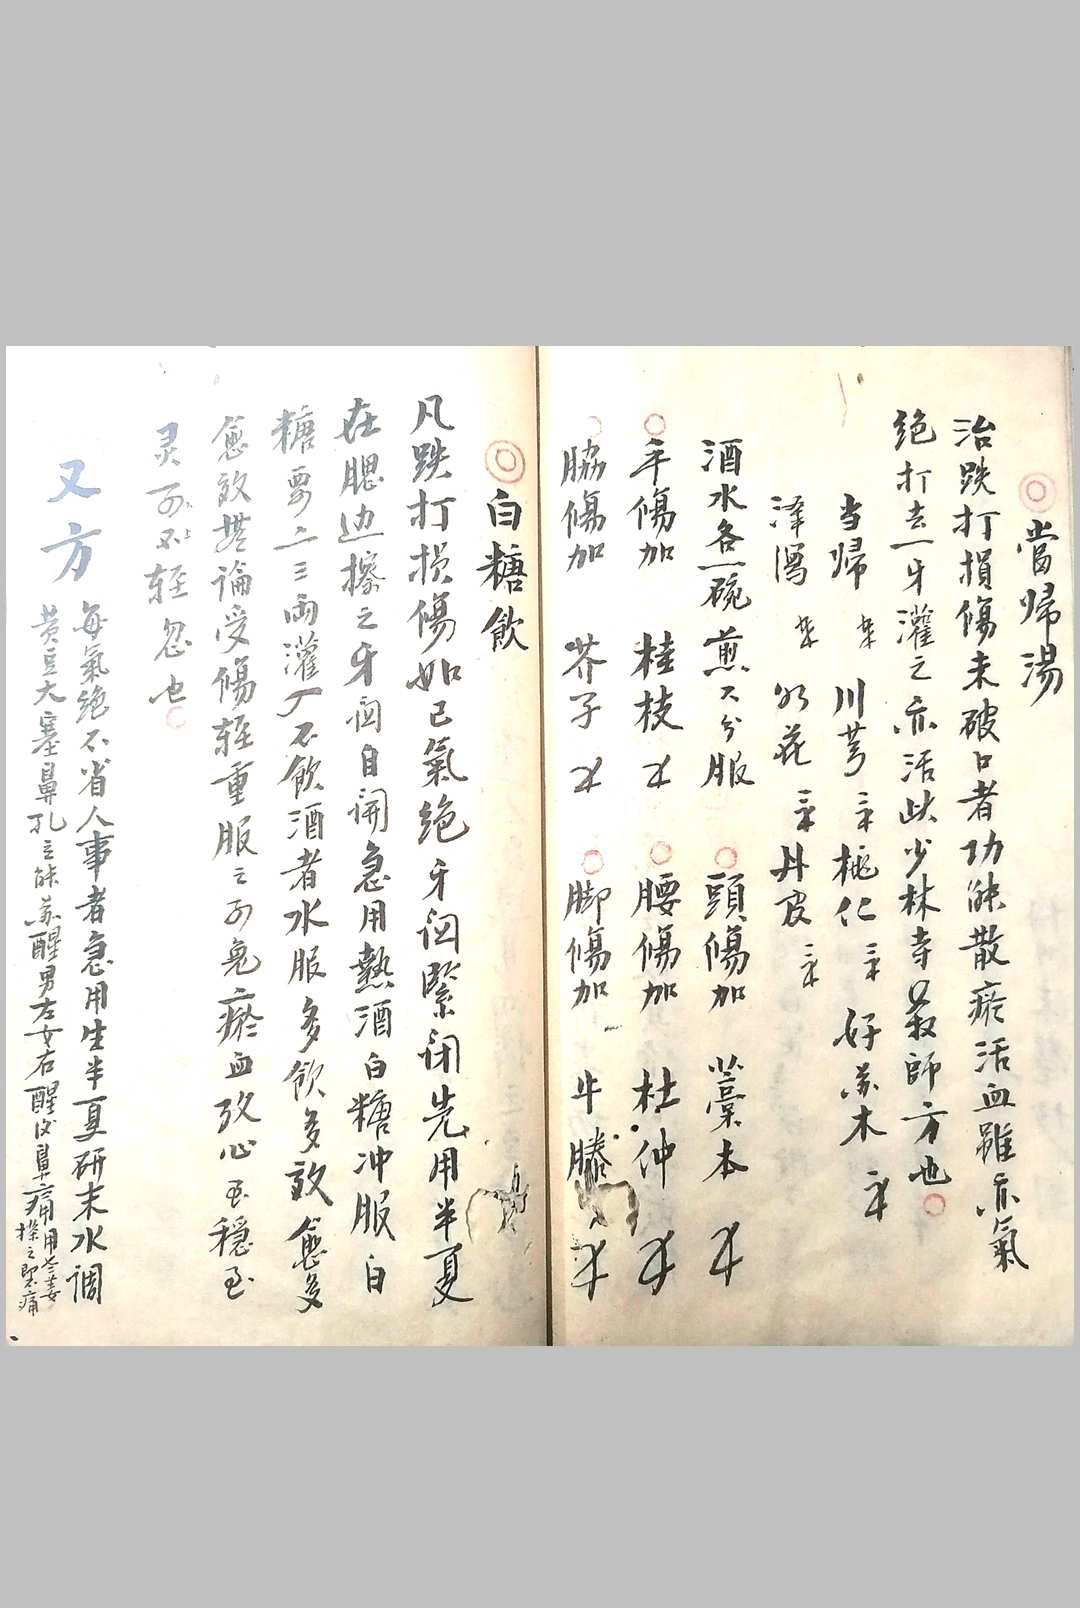 當歸湯
治跌打損傷未破口者功能散瘀活血雖亦氣
絕打去一牙灌之亦活此少林寺最師方也
当帰 川芎 桃仁 好苏木
泽瀉 红花 丹皮
酒水各一碗煎六分服 頭傷加 藁本
手傷加 桂枝 腰傷加 杜仲
脇傷加 芥子 脚傷加 牛膝
白糖飲
凡跌打損傷如已氣絕牙闗緊闭先用半夏
在腮边擦之牙闗自開急用熱酒白糖冲服白
糖要二三両灌入不飲酒者水服多飲多效愈多
愈效無論受傷輕重服之可免瘀血攻心至穩至
灵可不輕忽也
又方
每氣絕不省人事者急用生半夏研末水調
黄豆大塞鼻孔立能苏醒男左女右醒後鼻痛用
擦之即不痛